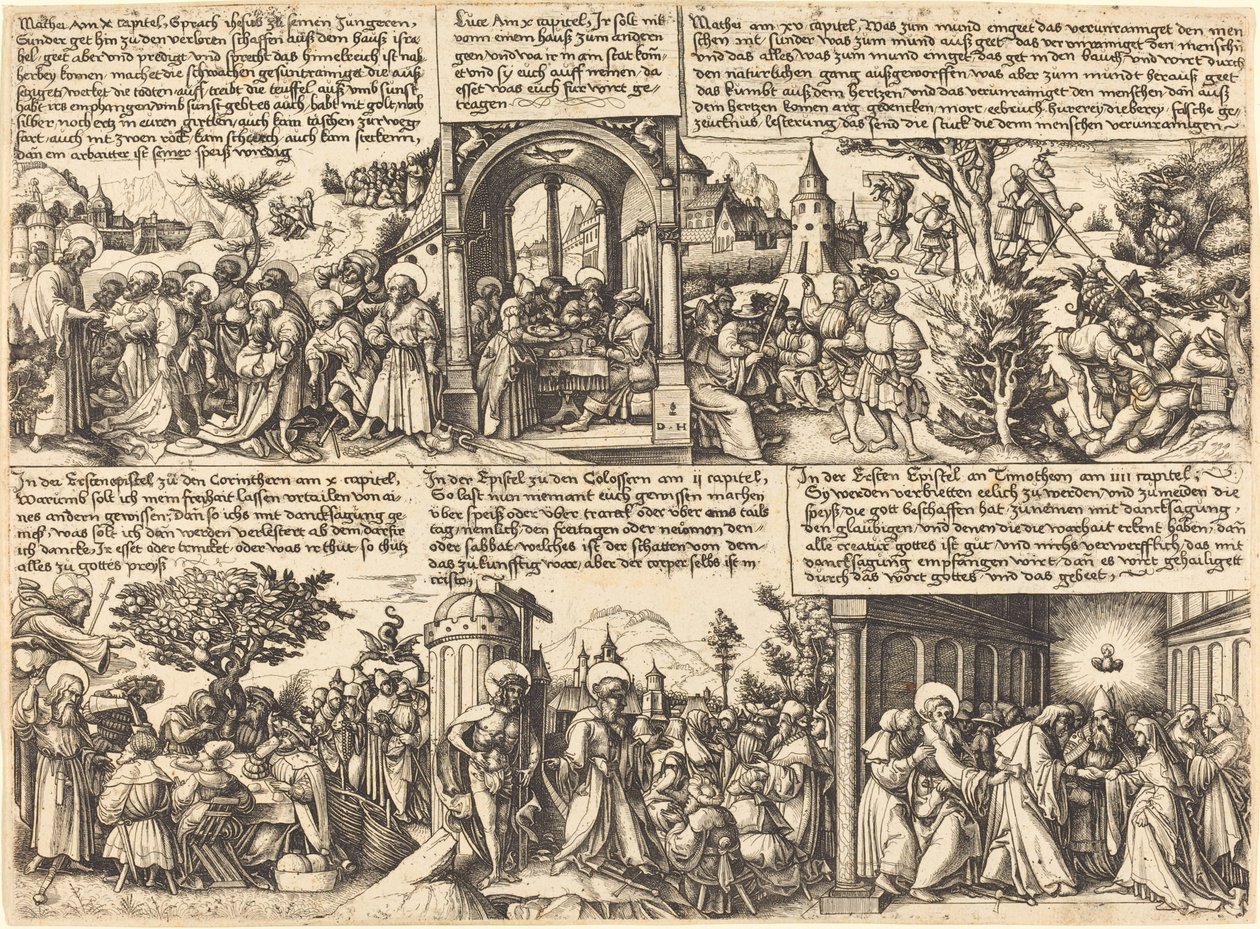 Mathei Am x capitel, Sprach ihesus zu seinen Jungeren,
Sunder get hin zu den verloren schaffen auß dem hauß isra
hel, geet aber vnd predigt vnd sprecht das himelreich ist nah
herbey komen, machet die schwachen gesunt, rainiget die auß
setzigen, wecket die todten auff, treibt die teuffel auß, vmb sunst
habt irs empfangen, vmb sunst gebt es auch, habt nit golt, noch
silber, noch ertz in euren girtlen, auch kain taschen zur weg
fart, auch nit zwen röck, kain schuech, auch kain steckenn,
dan ein arbaiter ist seiner speiß wirdig
Luce Am x capitel, Ir solt nit
vonn einem hauß zum anderen
geen, vnd wa ir in am stat kom
et vnd sy euch auff nemen, da
esset was euch für wirt ge-
tragen
Mathei am xv capitel, Was zum mund einget das verunrainiget den men
schen nit, sunder was zum mund auß geet, das verunrainiget den menschn
vnd das alles was zum mund einget, das get in den bauch, vnd wirt durch
den natürlichen gang außgeworffen, was aber zum mundt herauß geet
das kumbt auß dem hertzen, vnd das verunrainiget den menschen dan auß
dem hertzen komen arg gedencken, mort, eebruch, hurerey, dieberey, falsche ge-
zeucknus, lesterung, das send die stuck die denn menschen verunrainigen
D H
In der Ersten epistel zu den Corinthern am x capitel,
Warumb solt ich mein freihait lassen vrtailen von ai-
nes andern gewissen, Dan so ichs mit dancksagung ge
meß, was solt ich dan werden verlestert ab dem darfür
ich dancke, Ir esset oder trincket, oder was ir thut, so thutz
alles zu gottes preyß
In der Epistel zu den Colossern am ii capitel,
So last nun niemant euch gewissen machen
über speiß oder über tranck, oder über ains tails
tag, nemlich, den feirtagen oder neümon den-
oder sabbat, welches ist der schatten von dem-
das zukunfftig war, aber der corper selbs ist in
cristo,
In der Ersten Epistel an Timotheon am iiii capitel,
Sy werden verbietten eelich zu werden, vnd zu meiden die
speyß, die gott beschaffen hat, zu nemen mit dancksagung,
den glaubigen, vnd denen die die warhait erkent haben, dan
alle creatur gottes ist gut, vnd nichs verwerfflich, das mit
dancksagung empfangen wirt, dan es wirt gehailigett
durch das wort gottes, vnd das gebeet,